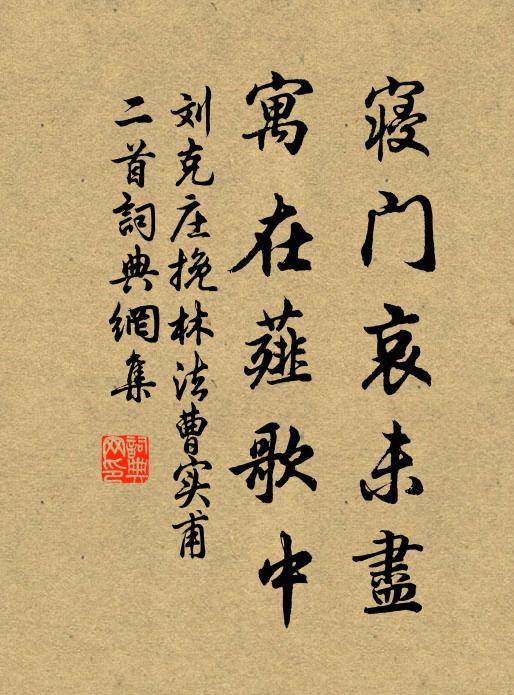 寢門哀未盡
寓在薤歌中
刘克庄挽林法曹实甫
二首詞典網集
詞典网印